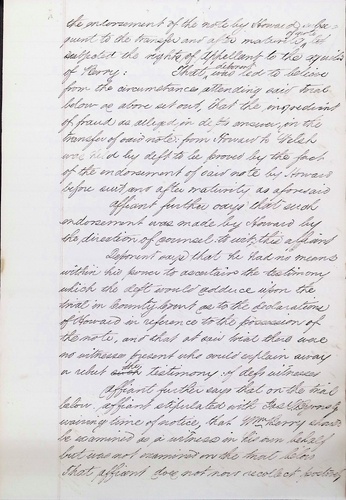 the endorsement of the note by Howard subse-
quent to the transfer and after maturity of note
subjected the rights of Appellant to the equities
of Perry: That deponent was led to believe
from the circumstances attending said trial
below as above set out, that the ingredient
of fraud as alleged in defts answer, in the
transfer of said note from Howard to Welsh
was held by deft to be proved by the fact
of the endorsement of said note by Howard
before suit and after maturity as aforesaid
affiant further says that such
endorsement was made by Howard by
the direction of counsel to wit, this affiant
Deponent says that he had no means
within his power to ascertain the testimony
which the deft would adduce upon the
trial in County Court as to the declarations
of Howard in reference to the possession of
the note, and that at said trial there were
no witnesses present who could explain away
or rebut the testimony of defts witnesses
affiant further says that on the trial
below, affiant stipulated with
waiving time of notice, that Wm Perry should
be examined as a witness in his own behalf
but was not examined on the trial below
That affiant does not now recollect positively